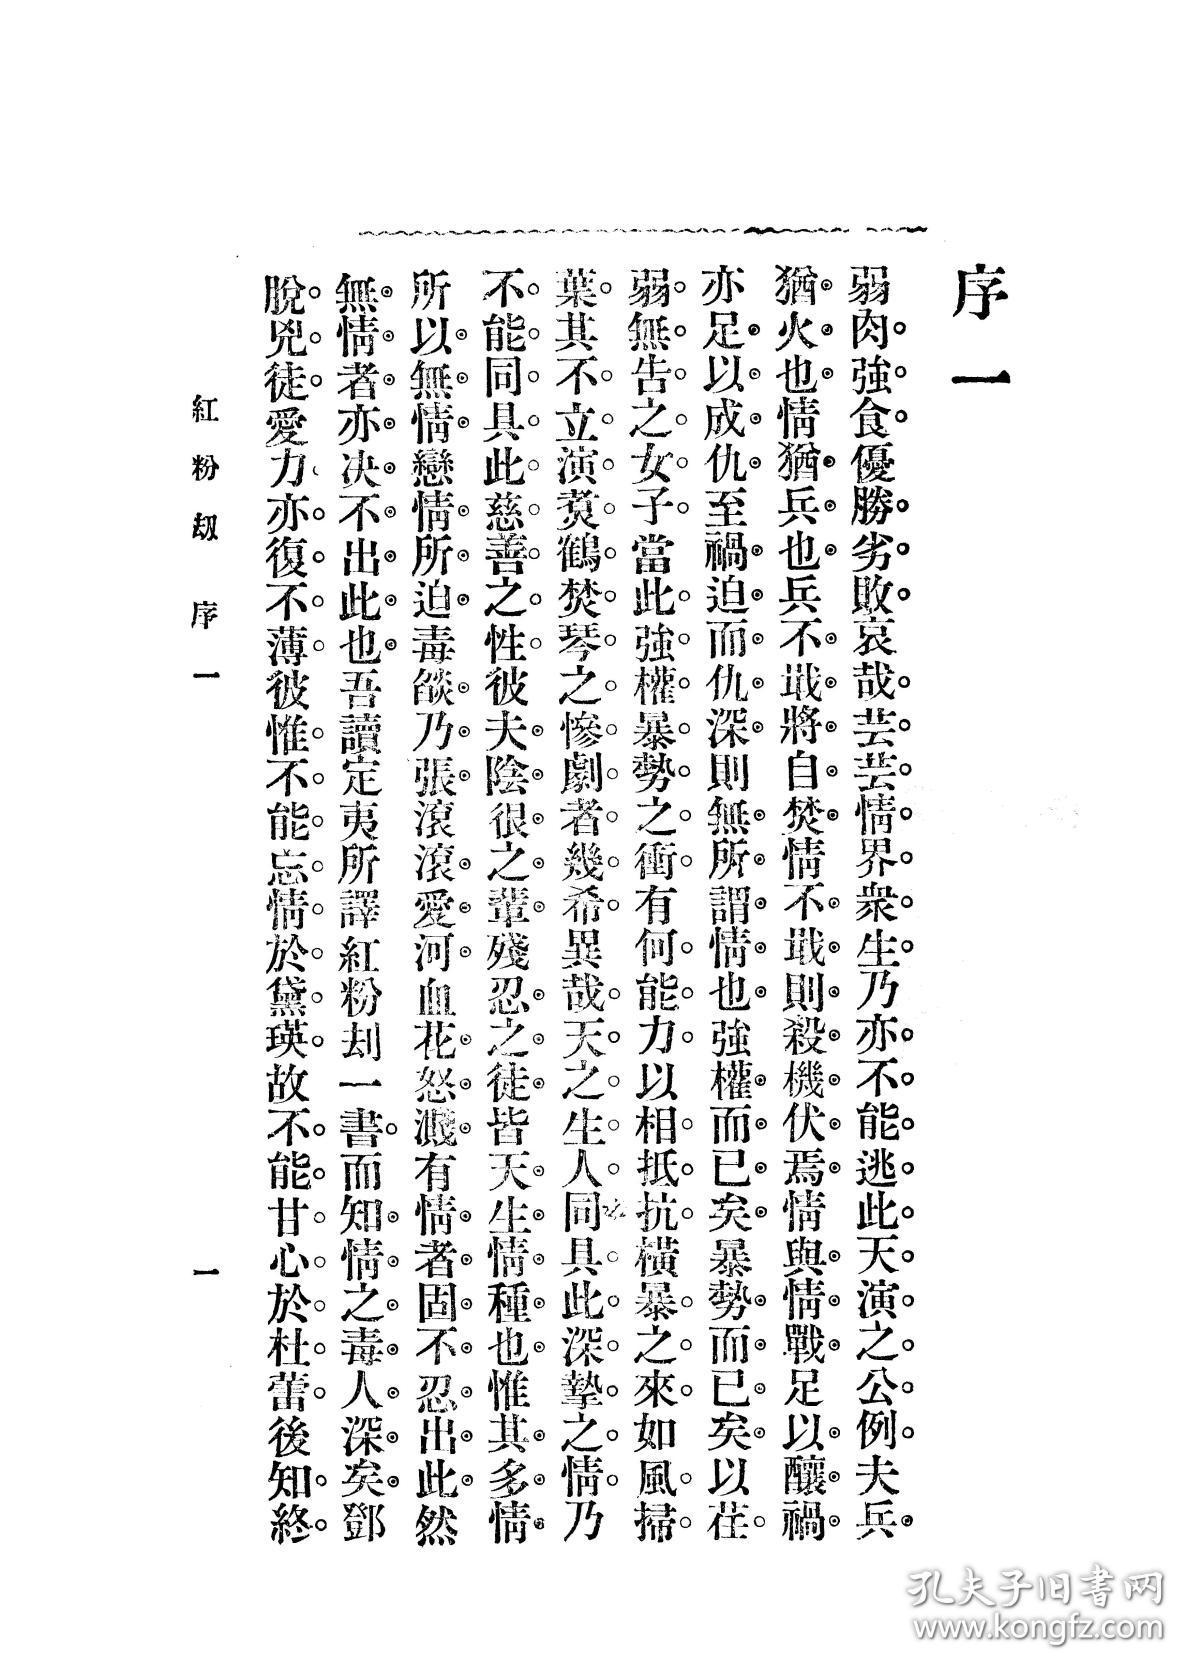 序一
弱肉強食優勝劣敗哀哉芸芸情界衆生乃亦不能逃此天演之公例夫兵
猶火也情猶兵也兵不戢將自焚情不戢則殺機伏焉情與情戰足以釀禍
亦足以成仇至禍迫而仇深則無所謂情也強權而已矣暴勢而已矣以荏
弱無告之女子當此強權暴勢之衝有何能力以相抵抗橫暴之來如風掃
葉其不立演煑鶴焚琴之慘劇者幾希異哉天之生人同具此深摯之情乃
不能同具此慈善之性彼夫陰很之輩殘忍之徒皆天生情種也惟其多情
所以無情戀情所迫毒燄乃張滾滾愛河血花怒濺有情者固不忍出此然
無情者亦决不出此也吾讀定夷所譯紅粉刦一書而知情之毒人深矣鄧
脫兇徒愛力亦復不薄彼惟不能忘情於黛瑛故不能甘心於杜蕾後知終
紅粉刼 序一 一
孔夫子旧书网
www.kongfz.com